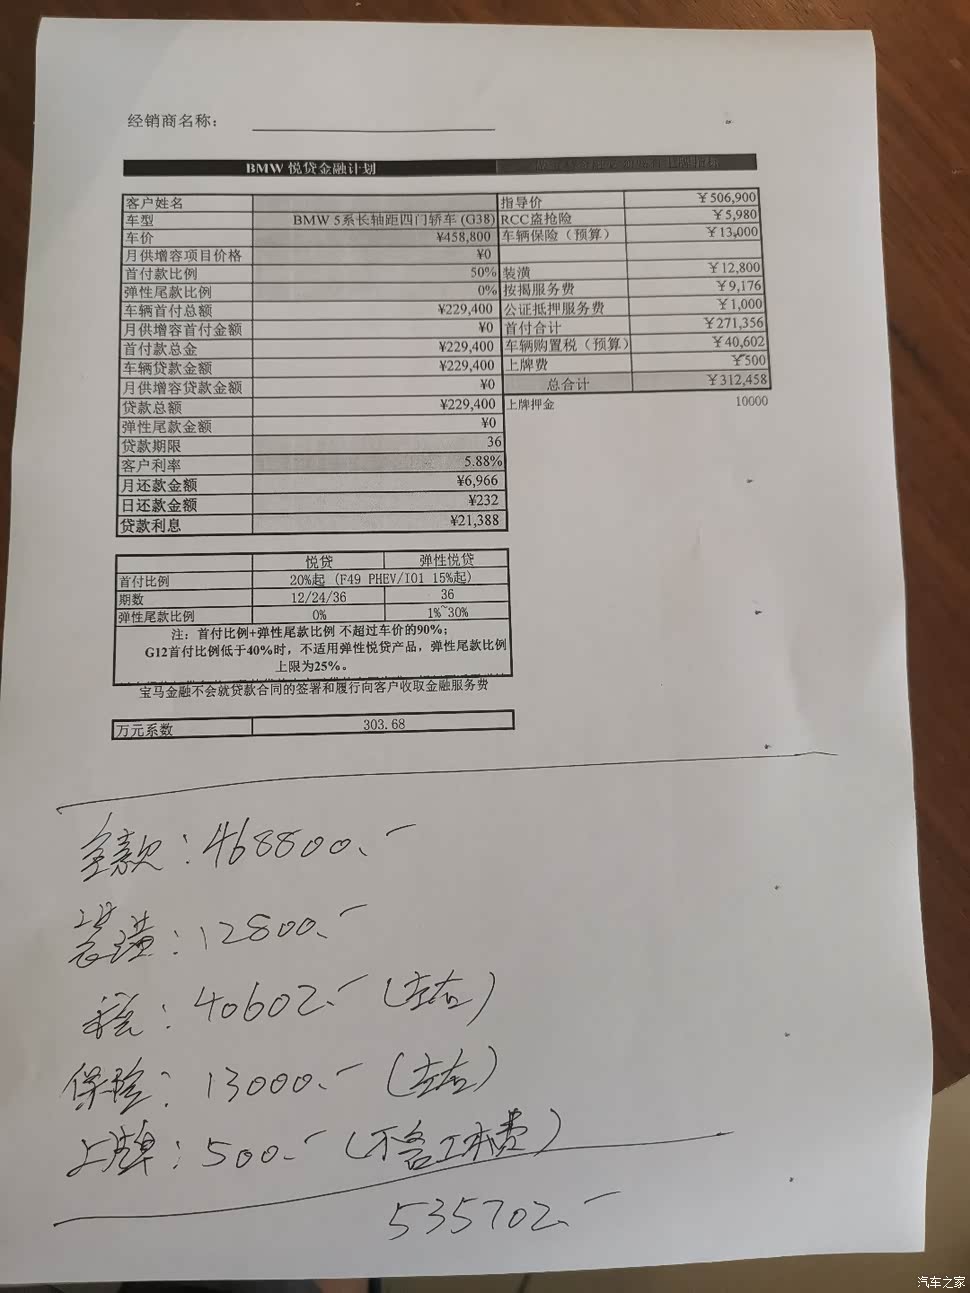 经销商名称：
BMW 悦贷金融计划
客户姓名
车型 BMW 5系长轴距四门轿车 (G38)
车价 ¥458,800
月供增容项目价格 ¥0
首付款比例 50%
弹性尾款比例 0%
车辆首付总额 ¥229,400
月供增容首付金额 ¥0
首付款总金 ¥229,400
车辆贷款金额 ¥229,400
月供增容贷款金额 ¥0
贷款总额 ¥229,400
弹性尾款金额 ¥0
贷款期限 36
客户利率 5.88%
月还款金额 ¥6,966
日还款金额 ¥232
贷款利息 ¥21,388
指导价 ¥506,900
RCC盗抢险 ¥5,980
车辆保险（预算） ¥13,000
装潢 ¥12,800
按揭服务费 ¥9,176
公证抵押服务费 ¥1,000
首付合计 ¥271,356
车辆购置税（预算） ¥40,602
上牌费 ¥500
总合计 ¥312,458
上牌押金 10000
悦贷 弹性悦贷
首付比例 20%起 (F49 PHEV/I01 15%起)
期数 12/24/36 36
弹性尾款比例 0% 1%~30%
注：首付比例+弹性尾款比例 不超过车价的90%；
G12首付比例低于40%时，不适用弹性悦贷产品，弹性尾款比例
上限为25%。
宝马金融不会就贷款合同的签署和履行向客户收取金融服务费
万元系数 303.68
全款：468800.-
装潢：12800.-
税：40602.-（左右）
保险：13000.-（左右）
上牌：500.-（不含工本费）
535702.-
汽车之家